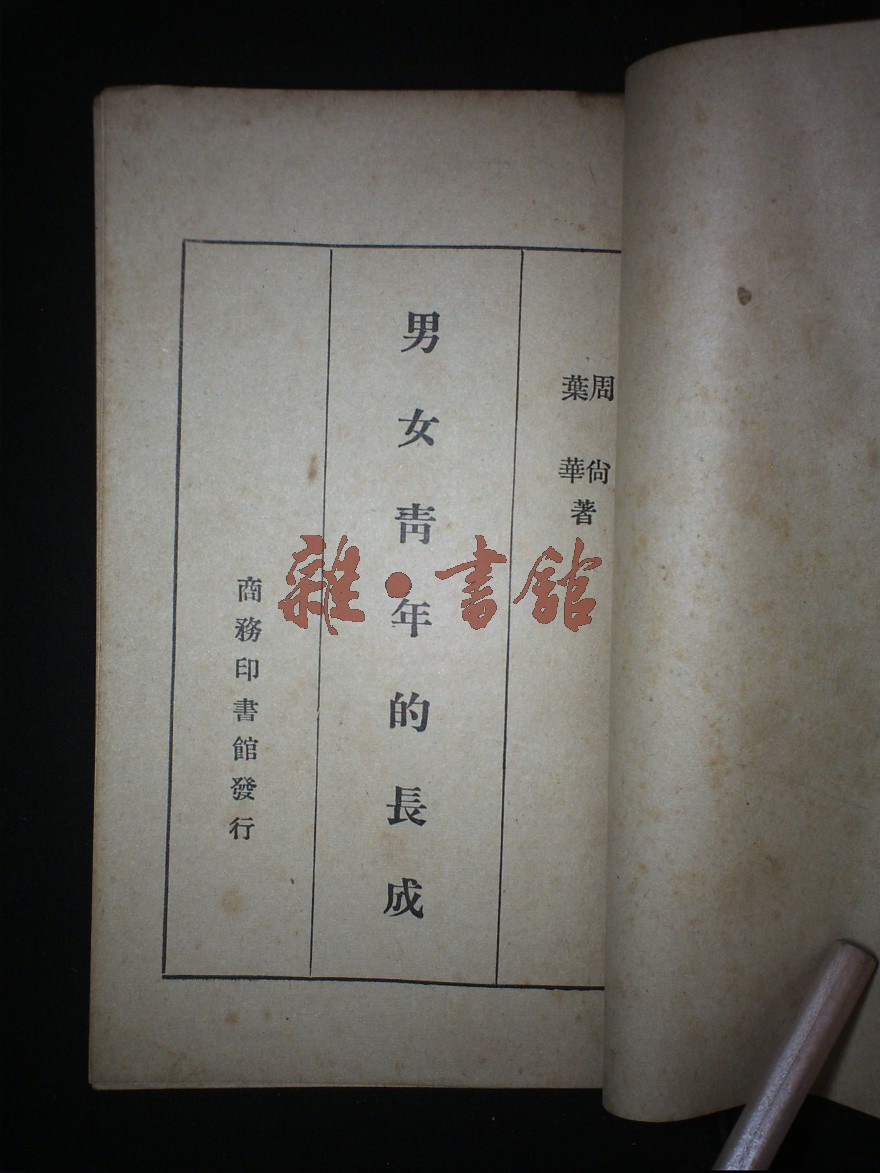 周尙
葉華
著
男女靑年的長成
商務印書館發行
雜·書館